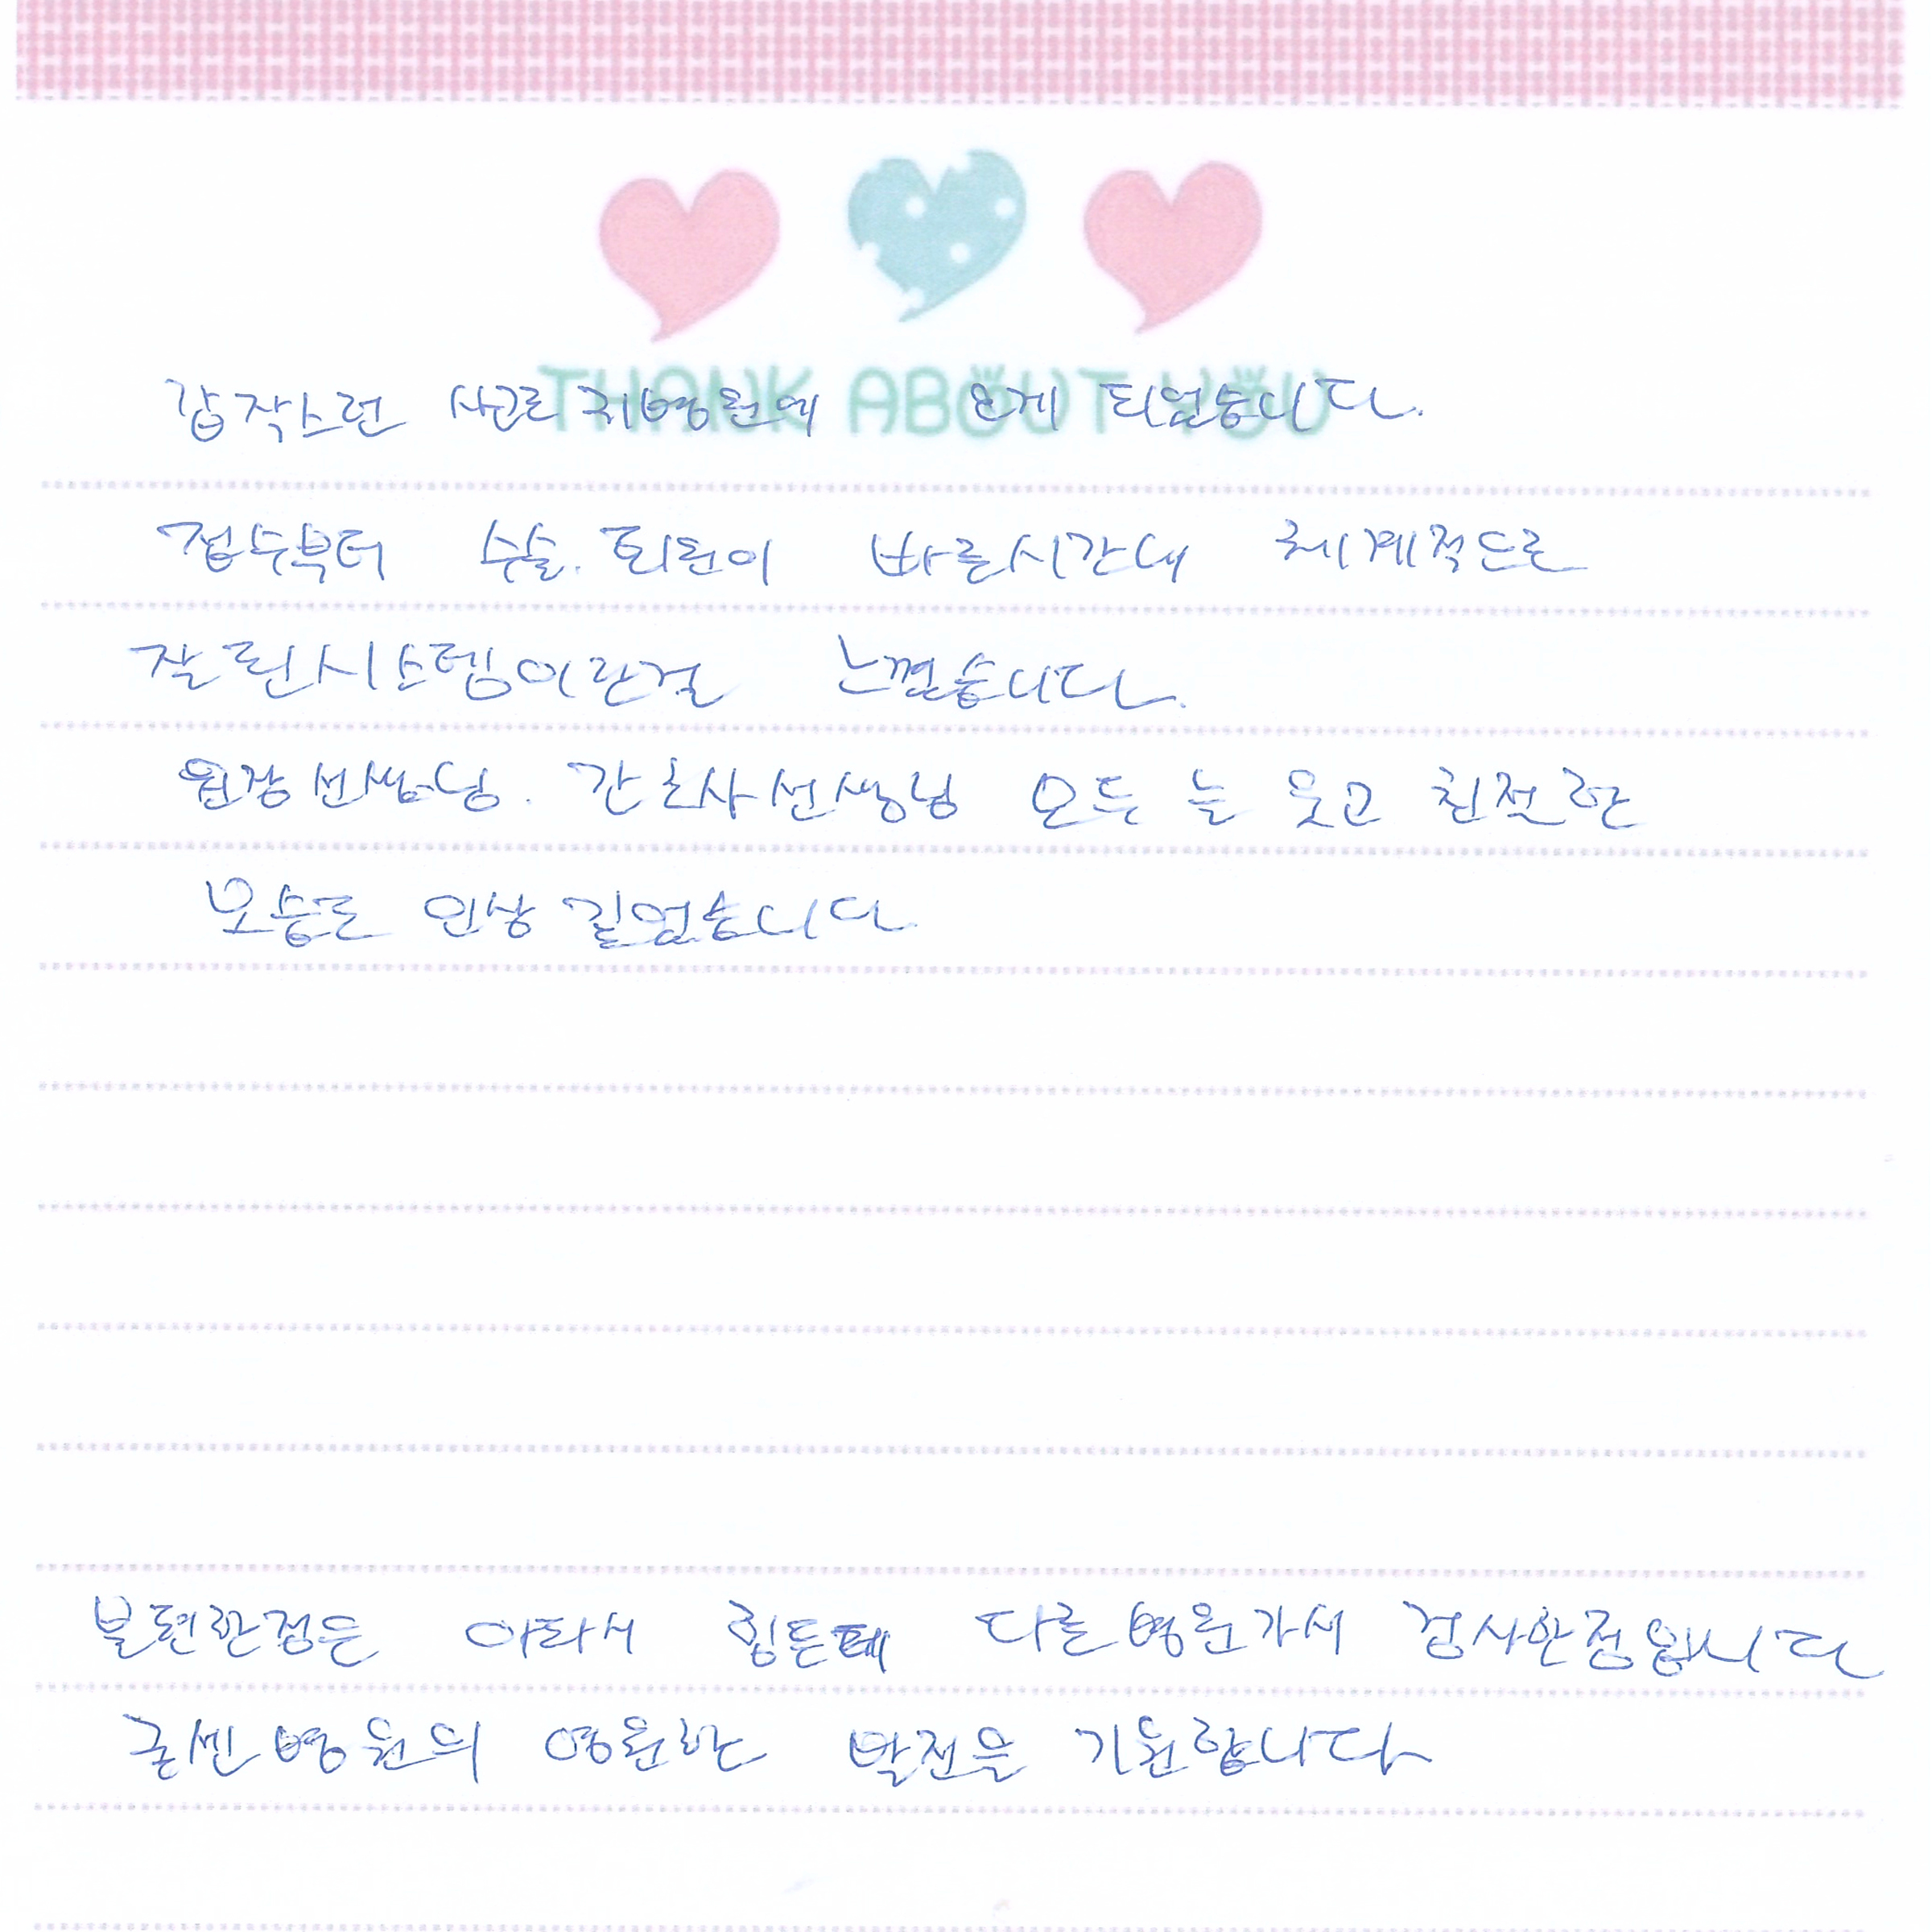 THANK ABOUT YOU
갑작스런 사고로 귀병원에 오게 되었습니다.
접수부터 수술. 퇴원이 빠른시간내 체계적으로
잘된시스템이란걸 느꼈습니다.
원장선생님. 간호사선생님 모두 늘 웃고 친절한
모습으로 인상 깊었습니다.
불편한점은 아파서 힘든데 다른병원가서 검사한점입니다
굳센병원의 영원한 발전을 기원합니다